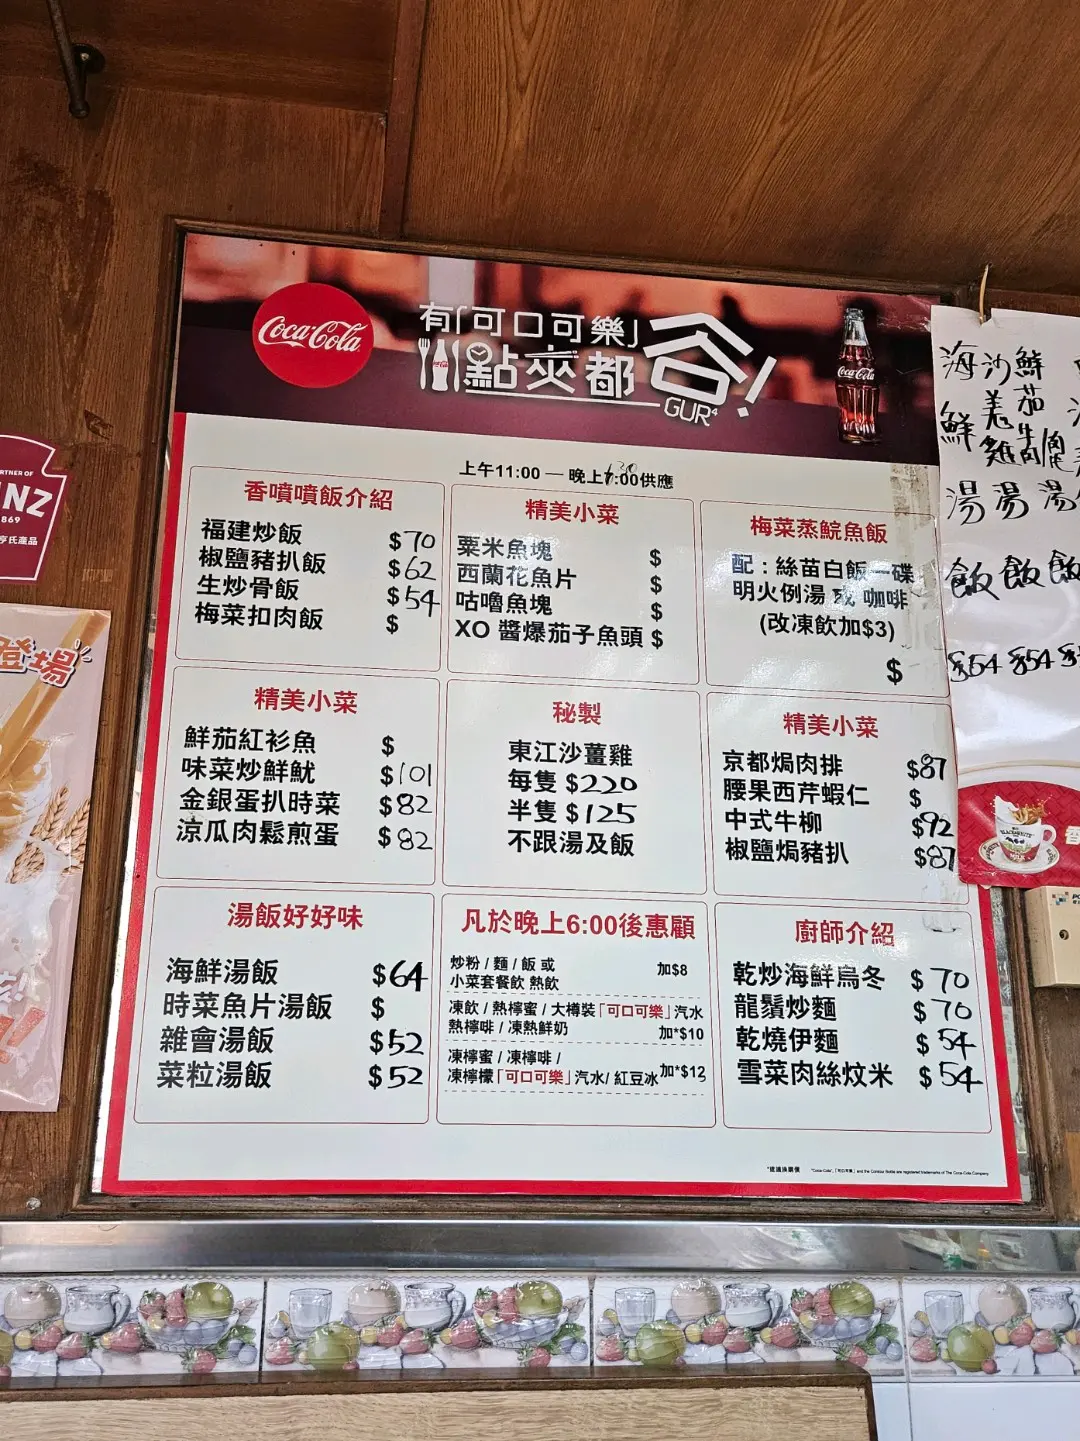 Coca-Cola
有「可口可樂」
點夾都
谷!
GUR⁴
Coca-Cola
上午11:00 — 晚上:00供應
香噴噴飯介紹
福建炒飯 $70
椒鹽豬扒飯 $62
生炒骨飯 $54
梅菜扣肉飯 $
精美小菜
粟米魚塊 $
西蘭花魚片 $
咕嚕魚塊 $
XO 醬爆茄子魚頭 $
梅菜蒸鯇魚飯
配：絲苗白飯一碟
明火例湯 或 咖啡
(改凍飲加$3)
$
精美小菜
鮮茄紅衫魚 $
味菜炒鮮魷 $101
金銀蛋扒時菜 $82
涼瓜肉鬆煎蛋 $82
秘製
東江沙薑雞
每隻 $220
半隻 $125
不跟湯及飯
精美小菜
京都焗肉排 $87
腰果西芹蝦仁 $
中式牛柳 $92
椒鹽焗豬扒 $87
湯飯好好味
海鮮湯飯 $64
時菜魚片湯飯 $
雜會湯飯 $52
菜粒湯飯 $52
凡於晚上6:00後惠顧
炒粉 / 麵 / 飯 或
小菜套餐飲 熱飲 加$8
凍飲 / 熱檸蜜 / 大樽裝「可口可樂」汽水
熱檸啡 / 凍熱鮮奶 加*$10
凍檸蜜 / 凍檸啡 /
凍檸檬「可口可樂」汽水/ 紅豆冰 加*$13
廚師介紹
乾炒海鮮烏冬 $70
龍鬚炒麵 $70
乾燒伊麵 $54
雪菜肉絲炆米 $54
*建議換購價
"Coca-Cola", 「可口可樂」 and the Contour Bottle are registered trademarks of The Coca-Cola Company.
RTNER OF
NZ
869
亨氏產品
登場
海鮮湯飯 $54
沙羗雞湯飯 $54
鮮茄牛肉湯飯
香